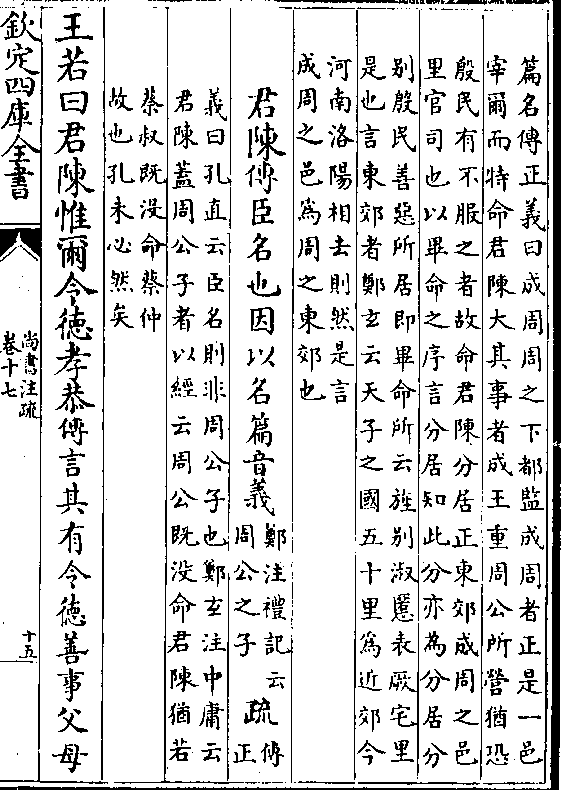 篇名傳正義曰成周周之下都監成周者正是一邑
宰爾而特命君陳大其事者成王重周公所營猶恐
殷民有不服之者故命君陳分居正東郊成周之邑
里官司也以畢命之序言分居知此分亦為分居分
别殷民善惡所居即畢命所云旌别淑慝表厥宅里
是也言東郊者鄭玄云天子之國五十里爲近郊今
河南洛陽相去則然是言
成周之邑爲周之東郊也
君陳傳臣名也因以名篇音義
鄭注禮記云
周公之子
疏
傳
正
義曰孔直云臣名則非周公子也鄭玄注中庸云
君陳蓋周公子者以經云周公既没命君陳猶若
蔡叔既没命蔡仲
故也孔未必然矣
王若曰君陳惟爾令徳孝恭傳言其有令徳善事父母
欽定四庫全書
尚書注疏
卷十七
十五